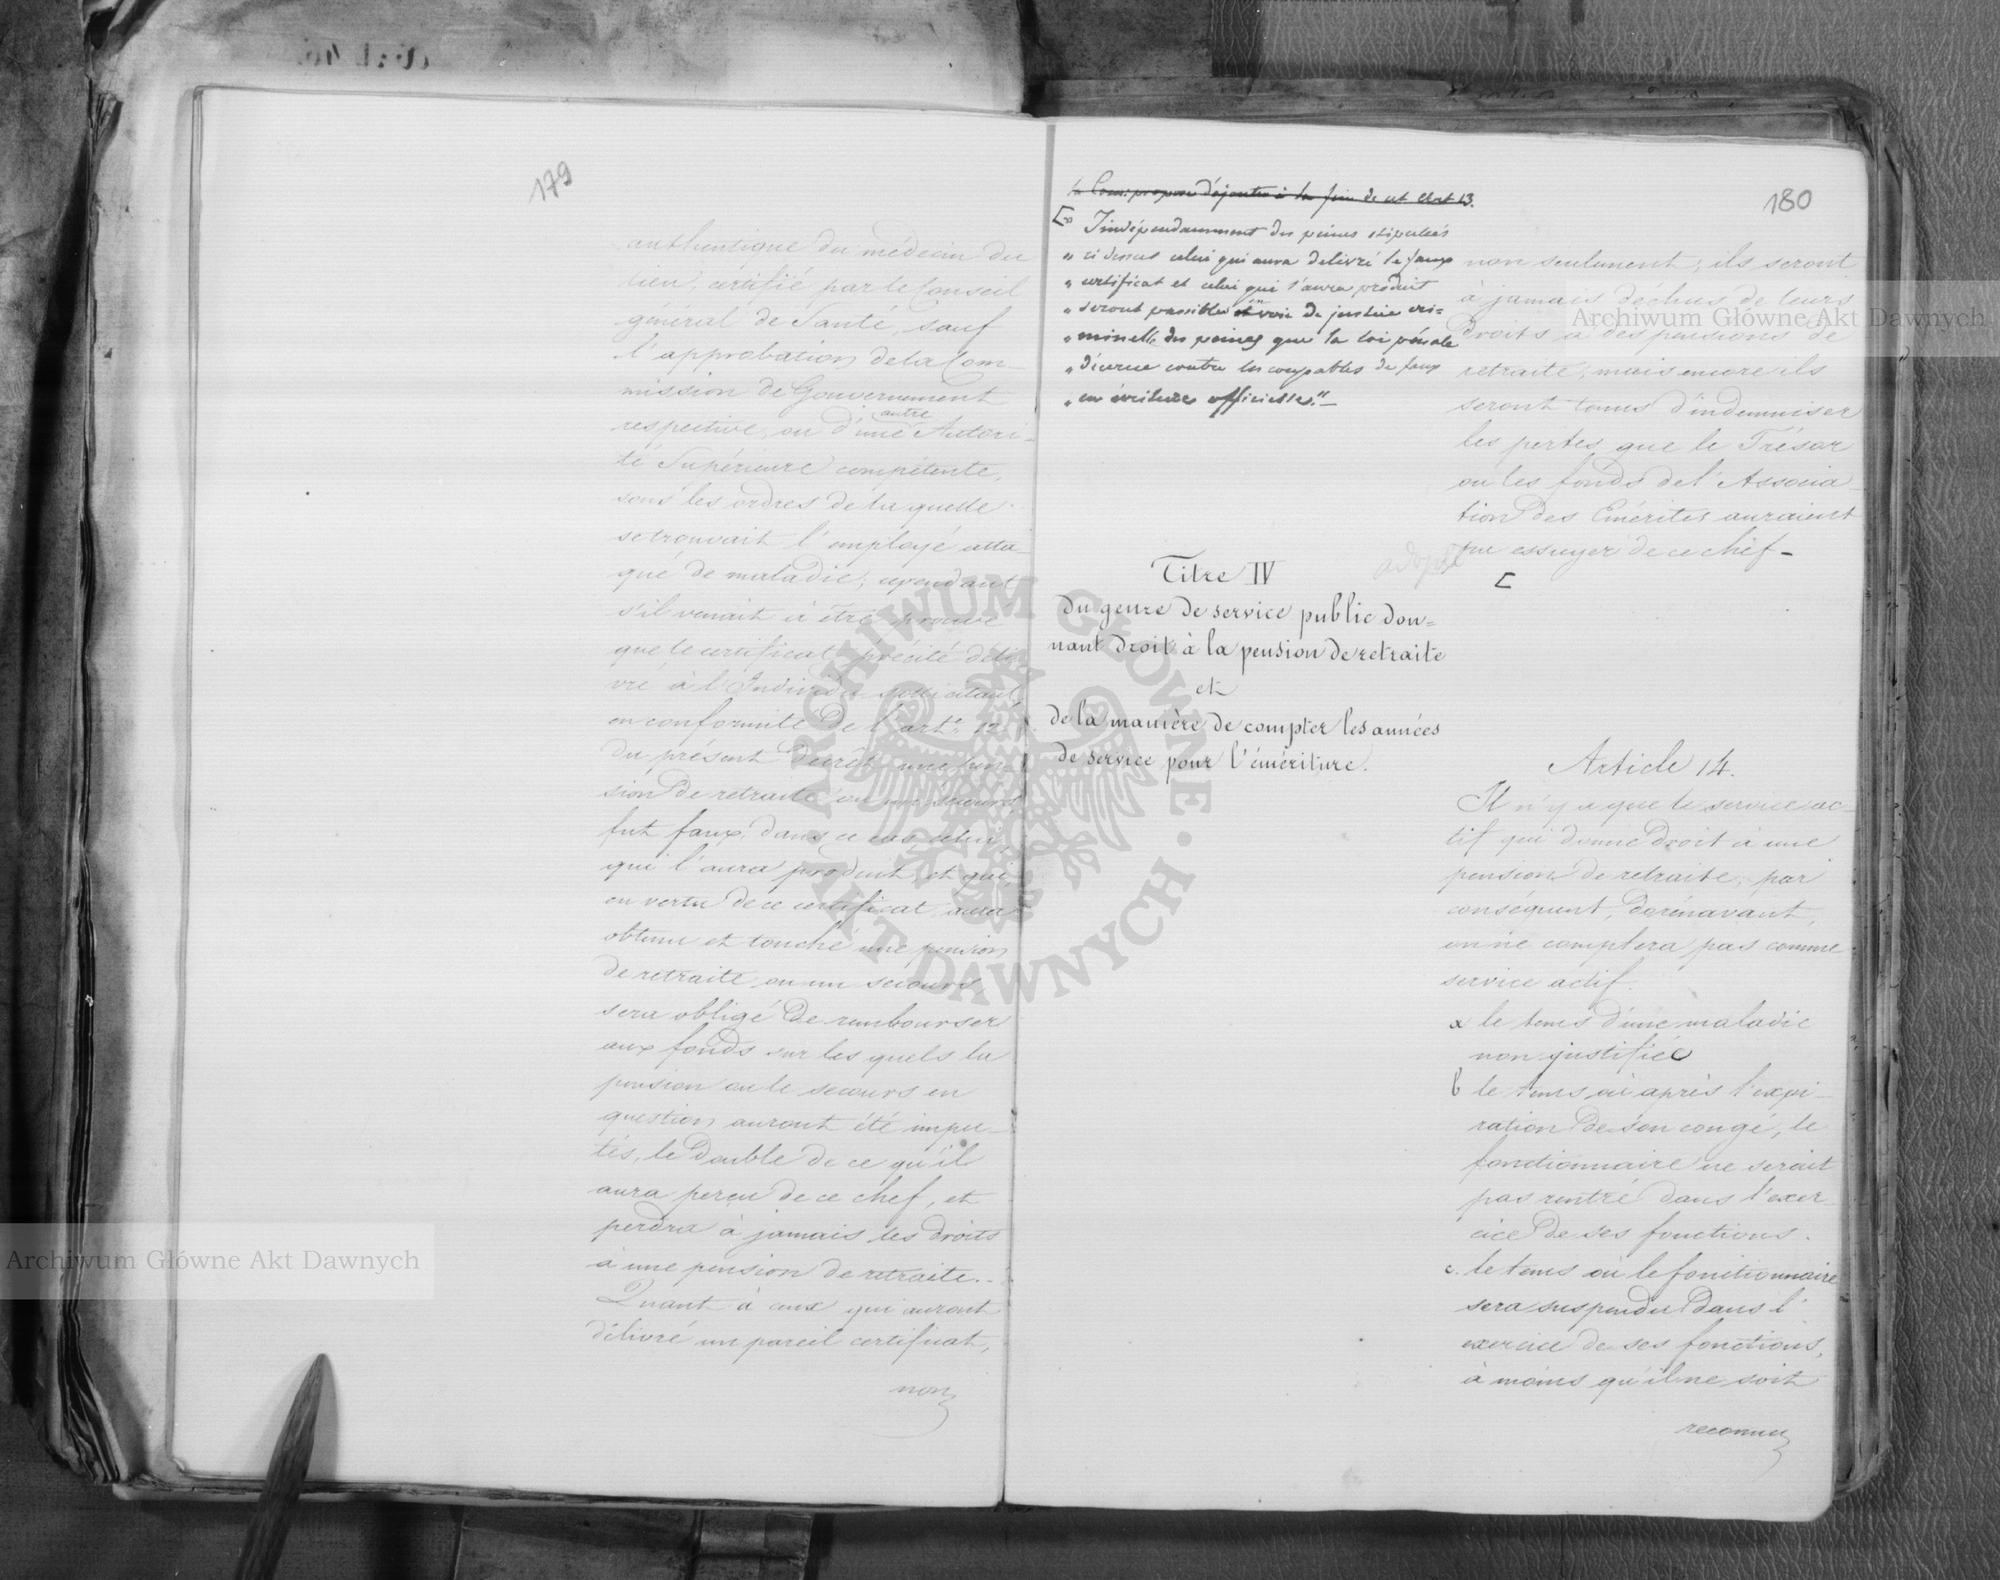 179
authentique du médecin du
lieu, certifié par le Conseil
général de Santé, sauf
l'approbation de la Com-
mission de Gouvernement
respective, ou d'une autre Autori-
té Supérieure compétente,
sous les ordres de laquelle
se trouvait l'employé atta-
qué de maladie; cependant
s'il venait à être prouvé
que le certificat précité déli-
vré à l'Individu sollicitant,
en conformité de l'art. 12
du présent décrêt, une pen-
sion de retraite ou un secours
fut faux, dans ce cas, celui
qui l'aura produit, et qui,
en vertu de ce certificat, aura
obtenu et touché une pension
de retraite ou un secours,
sera obligé de rembourser
aux fonds sur les quels la
pension ou le secours en
question auront été impu-
tés, le double de ce qu'il
aura perçu de ce chef, et
perdra à jamais les droits
à une pension de retraite.-
Quant à ceux qui auront
délivré un pareil certificat,
non
180
la Com: propose d'ajouter à la fin de cet Art 13.
[" Indépendamment des peines stipulées
" ci dessus celui qui aura delivré le faux
" certificat et celui qui l'aura produit
" seront passibles en voie de justice cri=
" minelle des peines que la loi pénale
" décerne contre les coupables de faux
" en écriture officielle."-
non seulement, ils seront
à jamais déchus de leurs
droits à des pensions de
retraite, mais encore ils
seront tenus d'indemniser
les pertes que le Trésor
ou les fonds de l'Associa-
tion des Emérites auraient
pu essuyer de ce chef-
[
adopté
Titre IV
du genre de service public don=
nant droit à la pension de retraite
et
de la manière de compter les années
de service pour l'émériture.
Article 14.
Il n'y a que le service ac-
tif qui donne droit à une
pension de retraite, par
conséquent, dorénavant,
on ne comptera pas comme
service actif.
a le tems d'une maladie
non justifiée
b le tems où après l'expi-
ration de son congé, le
fonctionnaire ne serait
pas rentré dans l'exer-
cice de ses fonctions.
c. le tems où le fonctionnaire
sera suspendu dans l'
exercice de ses fonctions,
à moins qu'il ne soit
reconnu
Archiwum Główne Akt Dawnych
Archiwum Główne Akt Dawnych
ARCHIWUM GŁÓWNE · AKT DAWNYCH ·